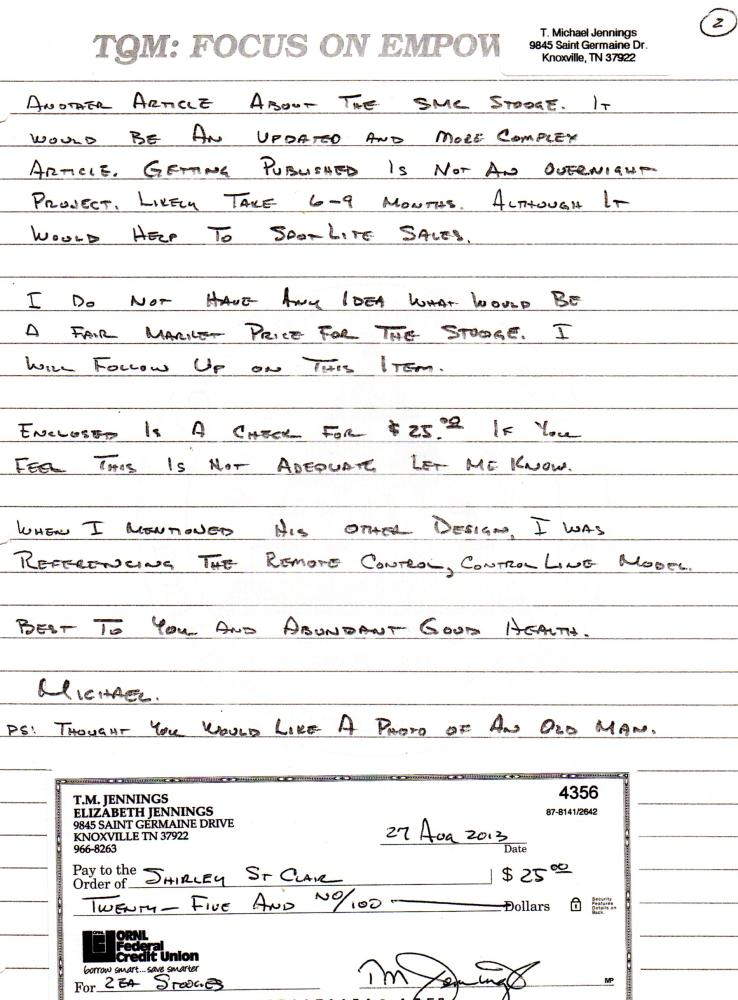 2
TQM: FOCUS ON EMPOW
T. Michael Jennings
9845 Saint Germaine Dr.
Knoxville, TN 37922
ANOTHER ARTICLE ABOUT THE SMC STOOGE. IT
WOULD BE AN UPDATED AND MORE COMPLEX
ARTICLE. GETTING PUBLISHED IS NOT AN OVERNIGHT
PROJECT. LIKELY TAKE 6-9 MONTHS. ALTHOUGH IT
WOULD HELP TO SPOT LITE SALES.
I DO NOT HAVE ANY IDEA WHAT WOULD BE
A FAIR MARKET PRICE FOR THE STOOGE. I
WILL FOLLOW UP ON THIS ITEM.
ENCLOSED IS A CHECK FOR $25.00 IF YOU
FEEL THIS IS NOT ADEQUATE LET ME KNOW.
WHEN I MENTIONED HIS OTHER DESIGN, I WAS
REFERENCING THE REMOTE CONTROL, CONTROL LINE MODEL.
BEST TO YOU AND ABUNDANT GOOD HEALTH.
MICHAEL.
PS: THOUGHT YOU WOULD LIKE A PHOTO OF AN OLD MAN.
T.M. JENNINGS
ELIZABETH JENNINGS
9845 SAINT GERMAINE DRIVE
KNOXVILLE TN 37922
966-8263
4356
87-8141/2642
27 AUG 2013
Date
Pay to the
Order of SHIRLEY ST CLAIR $ 25 00
TWENTY-FIVE AND NO/100 Dollars
Security
Features
Details on
Back.
ORNL
Federal
Credit Union
borrow smart...save smarter
For 2 EA STOOGES TM Jennings MP